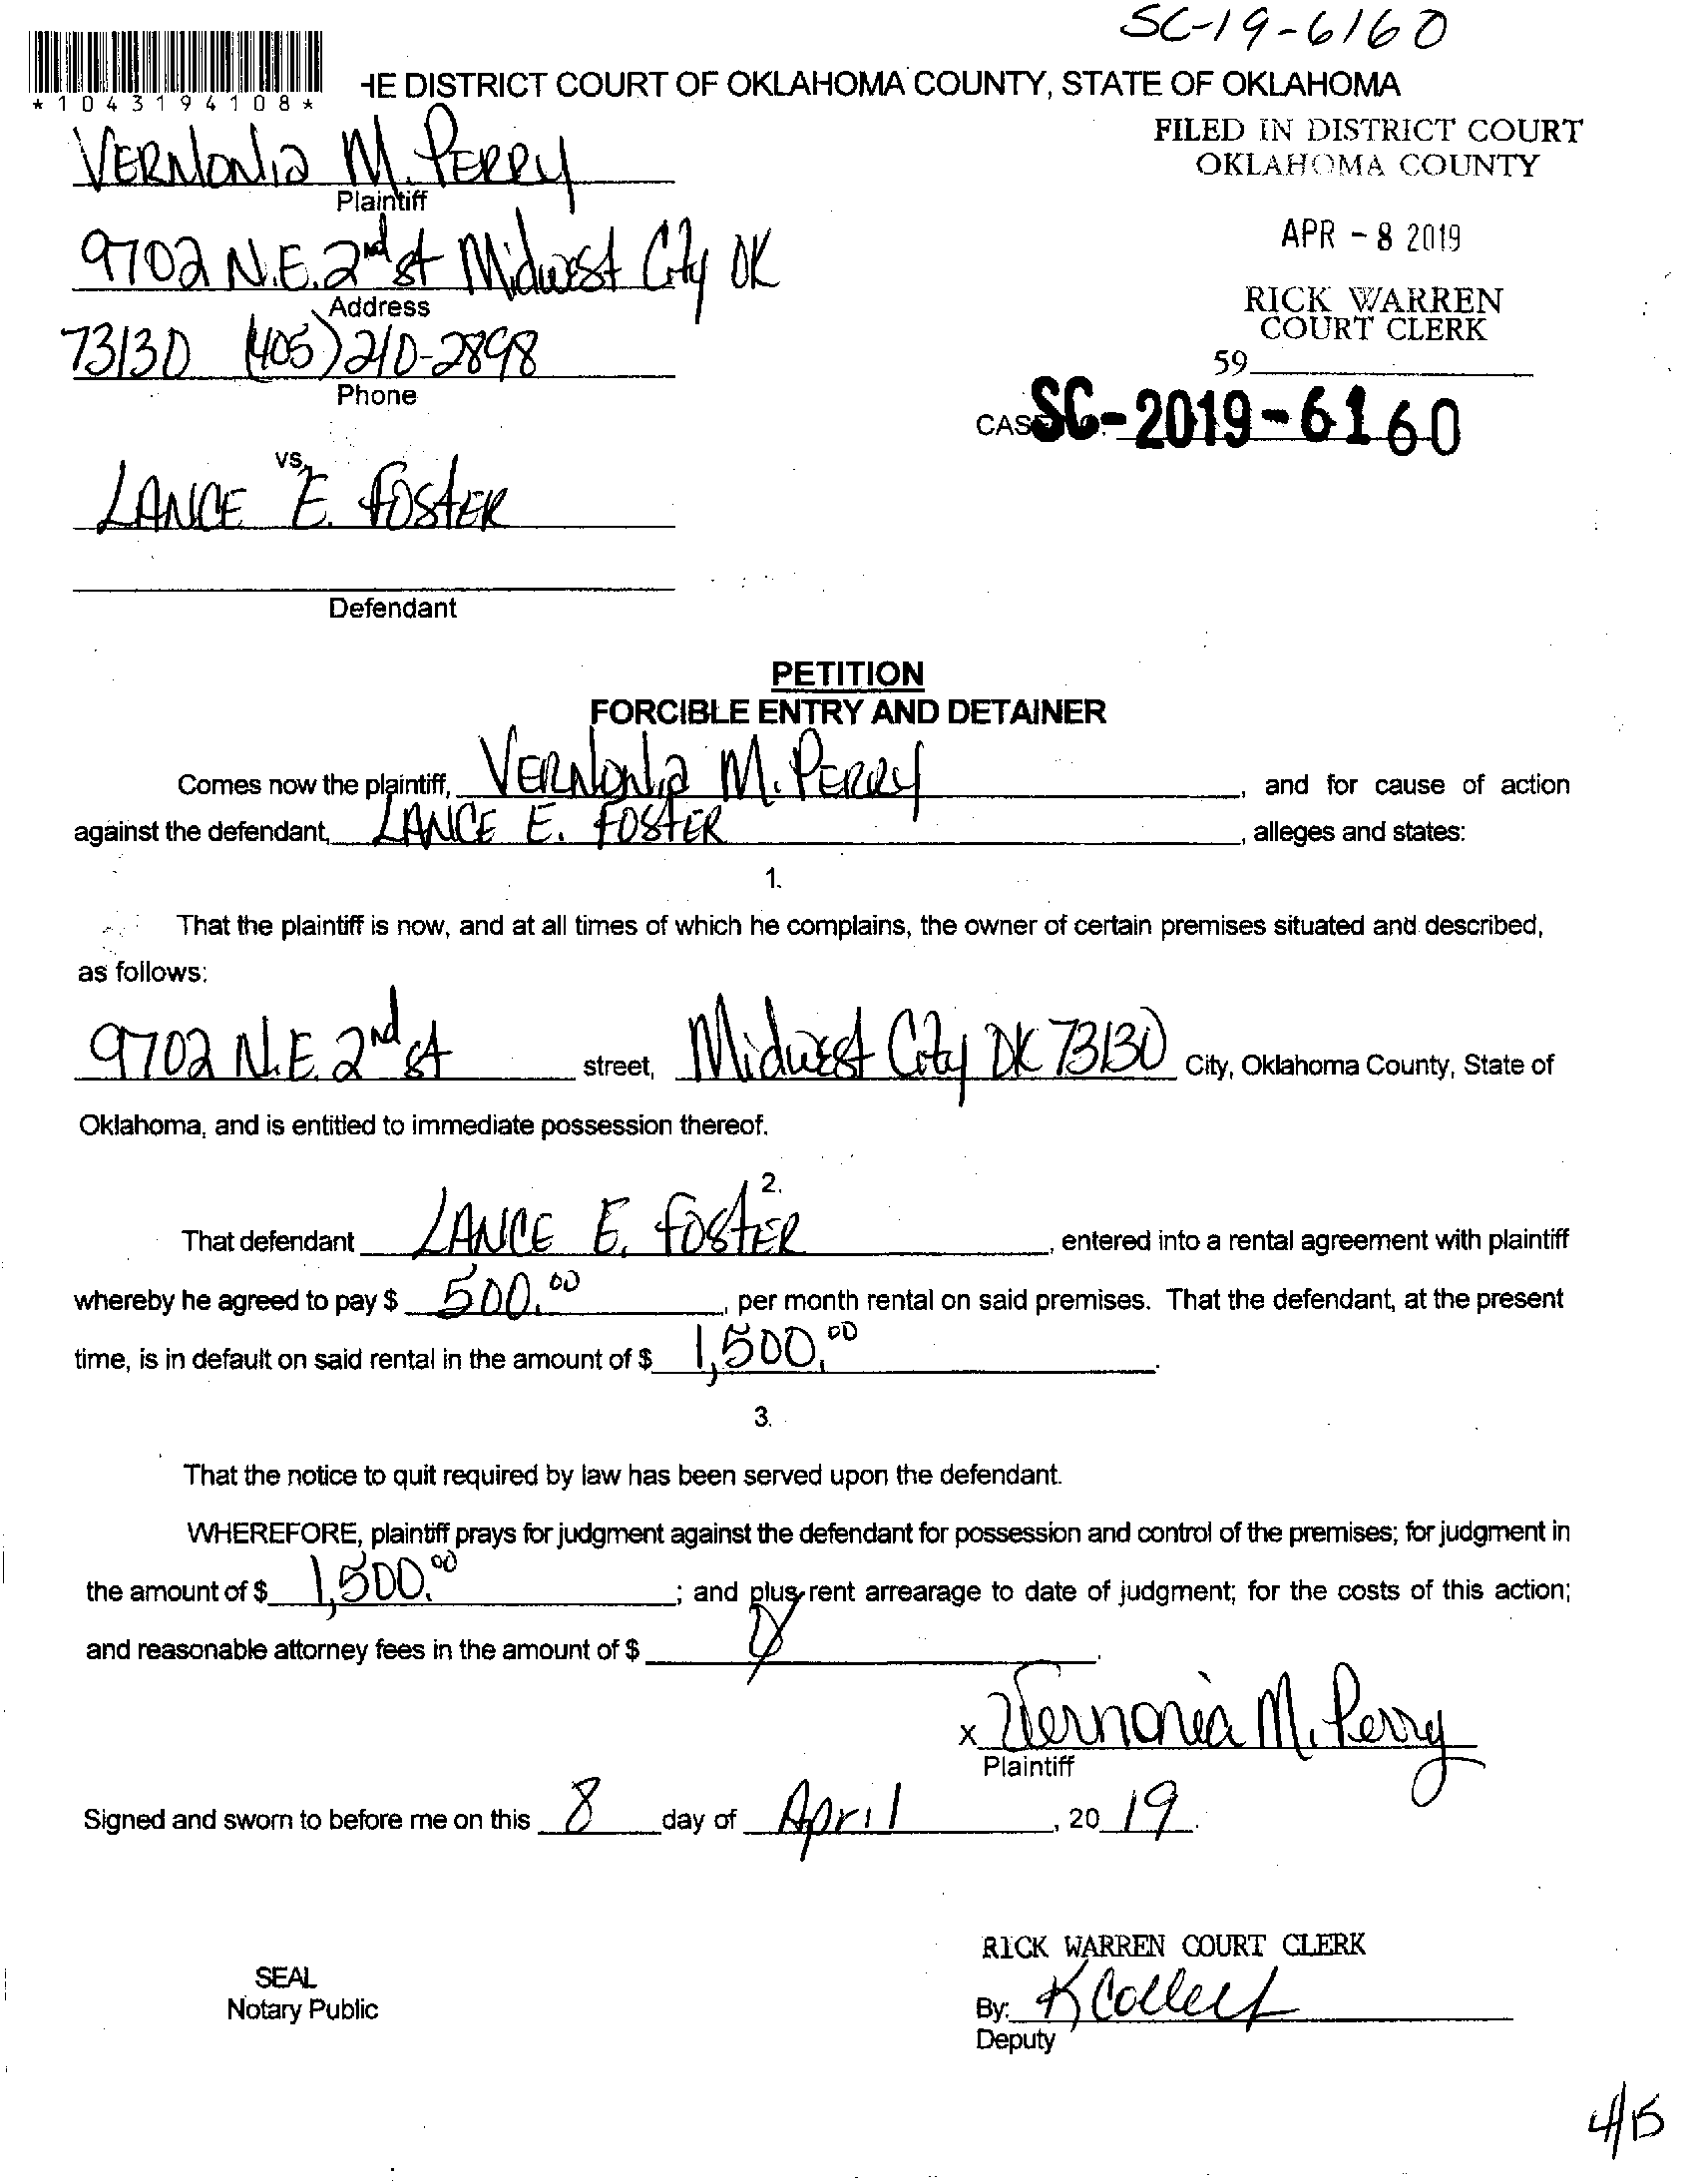 SC-19-6160
*1043194108*
HE DISTRICT COURT OF OKLAHOMA COUNTY, STATE OF OKLAHOMA
FILED IN DISTRICT COURT
OKLAHOMA COUNTY
VERNONIA M. PERRY
Plaintiff
APR - 8 2019
9702 N.E. 2nd st Midwest City OK
Address
RICK WARREN
COURT CLERK
73130 (405) 210-2898
Phone
59
CAS SC-2019-6160
vs.
LANCE E. FOSTER
Defendant
PETITION
FORCIBLE ENTRY AND DETAINER
Comes now the plaintiff, VERNONIA M. PERRY, and for cause of action
against the defendant, LANCE E. FOSTER, alleges and states:
1.
That the plaintiff is now, and at all times of which he complains, the owner of certain premises situated and described,
as follows:
9702 N.E. 2nd st street, Midwest City OK 73130 City, Oklahoma County, State of
Oklahoma, and is entitled to immediate possession thereof.
2.
That defendant LANCE E. FOSTER, entered into a rental agreement with plaintiff
whereby he agreed to pay $ 500.00, per month rental on said premises. That the defendant, at the present
time, is in default on said rental in the amount of $ 1,500.00.
3.
That the notice to quit required by law has been served upon the defendant.
WHEREFORE, plaintiff prays for judgment against the defendant for possession and control of the premises; for judgment in
the amount of $ 1,500.00; and plus rent arrearage to date of judgment; for the costs of this action;
and reasonable attorney fees in the amount of $ 0.
x Vernonia M. Perry
Plaintiff
Signed and sworn to before me on this 8 day of April, 20 19.
RICK WARREN COURT CLERK
SEAL
Notary Public
By: K Collect
Deputy
4/15